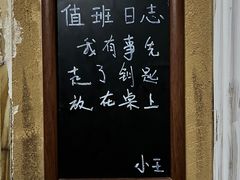 值班日志
我有事先
走了钥匙
放在桌上
小王